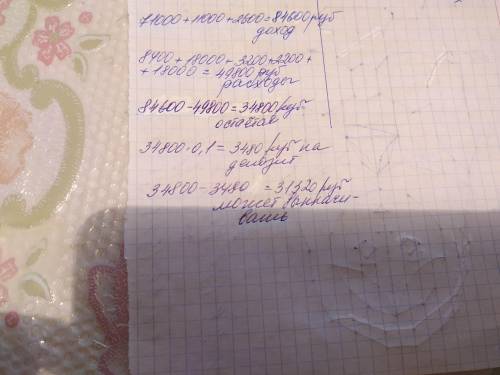 71000+11000+2600=84600 руб
доход
8400+18000+3200+2200+
+18000 = 49800 руб
расходы
84600-49800=34800 руб
остаток
34800·0,1=3480 руб на
депозит
34800-3480 =31320 руб
может выплачи-
вать